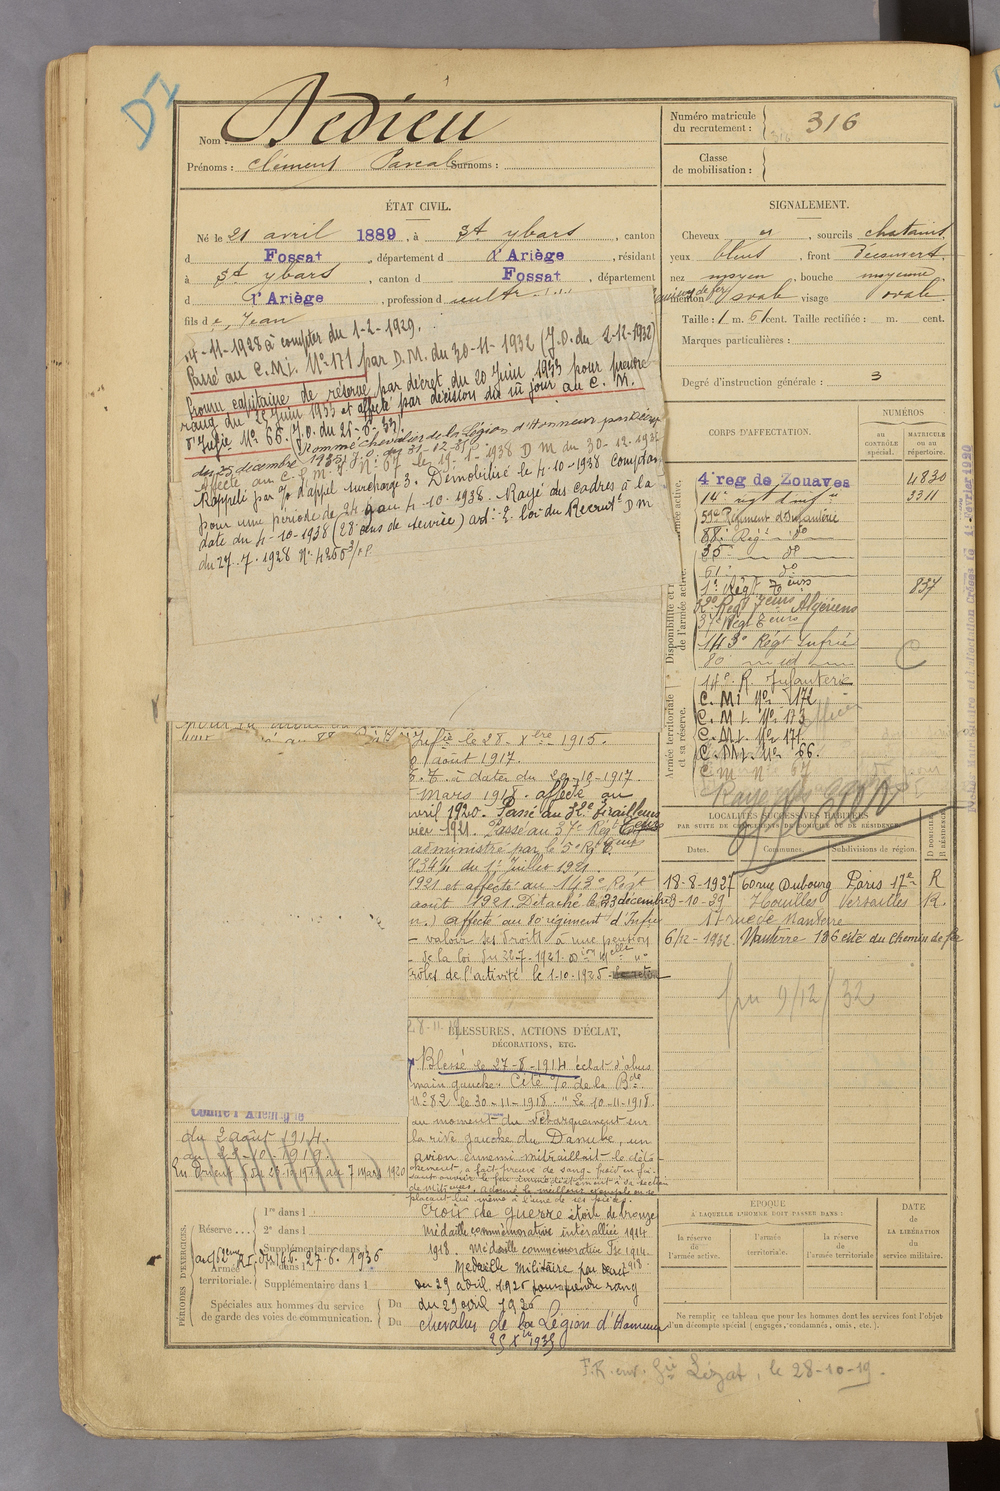 D7
Nom : Dedieu
Prénoms : Clément Pascal Surnoms :
Numéro matricule du recrutement : 316
316
Classe de mobilisation :
ÉTAT CIVIL.
Né le 21 avril 1889, à St ybars, canton
d Fossat, département d l'Ariège, résidant
à St ybars, canton d Fossat, département
d l'Ariège, profession d cultr
fils de, Jean
SIGNALEMENT.
Cheveux, sourcils chatains
yeux bleus, front découvert
nez moyen, bouche moyenne
menton ovale visage ovale
Taille : 1 m. 61 cent. Taille rectifiée : m. cent.
Marques particulières :
Degré d'instruction générale : 3
14-11-1928 à compter du 1-2-1929.
Passé au C.Mi. N° 171 par D.M. du 30-11-1932 (J.O. du 2-12-1932)
Promu capitaine de réserve par décret du 20 Juin 1933 pour prendre
rang du 25 Juin 1933 et affecté par décision du mi jour au C.M.
d'Infie N° 66. (J.O. du 25-6-33).
Nommé Chevalier de la Légion d'Honneur par Décret
du 25 decembre 1935 J.O. du 31-12-35
Affecté au C.M.I. N° 67 le 19-1-1938 D M du 30-12-1937
Rappelé par o/ d'appel surchargé 3. Démobilisé le 4-10-1938 Comptant
pour une période de 24-9 au 4-10-1938. Rayé des cadres à la
date du 4-10-1938 (28 ans de service) art. 2. loi du Recrutt D M
du 27.7.1928 N° 4265 3/
CORPS D'AFFECTATION.
NUMÉROS
au CONTRÔLE spécial.
MATRICULE ou au répertoire.
Disponibilité et réserve de l'armée active.
4e reg de Zouaves 4830
14e regt d'inf 3311
59e Régiment d'Infanterie
88e Regt do
35 do
61 do
1er Régt Zeurs 837
Regt Teurs Algériens
37e Regt Teurs
143e Régt Infrie
80 id
14e R. Infanterie
Armée territoriale et sa réserve.
C. Mi N° 172
C. M i. N° 173
C. M. i. N° 171
C. M. i. N° 66.
C M N° 67
Rayé des cadres
officier
Infie le 28. Xbre 1915.
août 1917.
à dater du 20-10-1917.
Mars 1918. affecté au
avril 1920. Passé au 32e Tirailleurs
vier 1921. Passé au 37e Rég Teurs
administré par le 5e Rg
8344 du 1er Juillet 1921
1921 et affecté au 143e Régt
août 1921. Détaché le 23 décembre
affecté au 80 régiment d'Infie
valoir ses droits à une pension
de la loi du
rôles de l'activité le 1-10-1925
LOCALITÉS SUCCESSIVES HABITÉES
PAR SUITE DE CHANGEMENTS DE DOMICILE OU DE RÉSIDENCE.
Dates. Communes. Subdivisions de région. D DOMICILE R RÉSIDENCE
18-8-1927 60 rue Dubourg Paris 17e R
3-10-29 Houilles Versailles R.
17 rue de Nanterre
6/12-1932 Nanterre 136 cité du Chemin de fer
9/12/32
28-11
BLESSURES, ACTIONS D'ÉCLAT,
DÉCORATIONS, ETC.
Blessé le 27-8-1914 éclat d'obus
main gauche. Cité o/ de la Bde.
N° 82 le 30-11-1918. "Le 10-11-1918.
au moment du débarquement sur
la rive gauche du Danube, un
avion ennemi mitraillait le déta-
chement, a fait preuve de sang-froid en fai-
sant ouvrir le feu immédiatement à sa section
de Mitrses, a donné le meilleur exemple en se
plaçant lui même à l'une de ses pièces.
Croix de guerre étoile de bronze
Médaille commémorative interalliée 1914
1918. Médaille commémorative Fse 1914-
1918.
Médaille Militaire par décret
du 29 avril 1926 pour prendre rang
du 29 avril 1926
Chevalier de la Légion d'Honneur
25 Xbre 1935
Contre l'Allemagne
du 2 août 1914.
au 28-10-1919.
En Orient
au 7 mars 1920
PÉRIODES D'EXERCICES.
Réserve
1re dans l
2e dans l
Supplémentaire dans l
Armée territoriale.
27.6.1936
dans l
Supplémentaire dans l
Spéciales aux hommes du service de garde des voies de communication.
Du
Du
ÉPOQUE
À LAQUELLE L'HOMME DOIT PASSER DANS :
la réserve de l'armée active.
l'armée territoriale.
la réserve de l'armée territoriale
DATE de LA LIBÉRATION du service militaire.
Ne remplir ce tableau que pour les hommes dont les services font l'objet
d'un décompte spécial (engagés, condamnés, omis, etc.).
F.R. env. Gie Lézat, le 28-10-19.